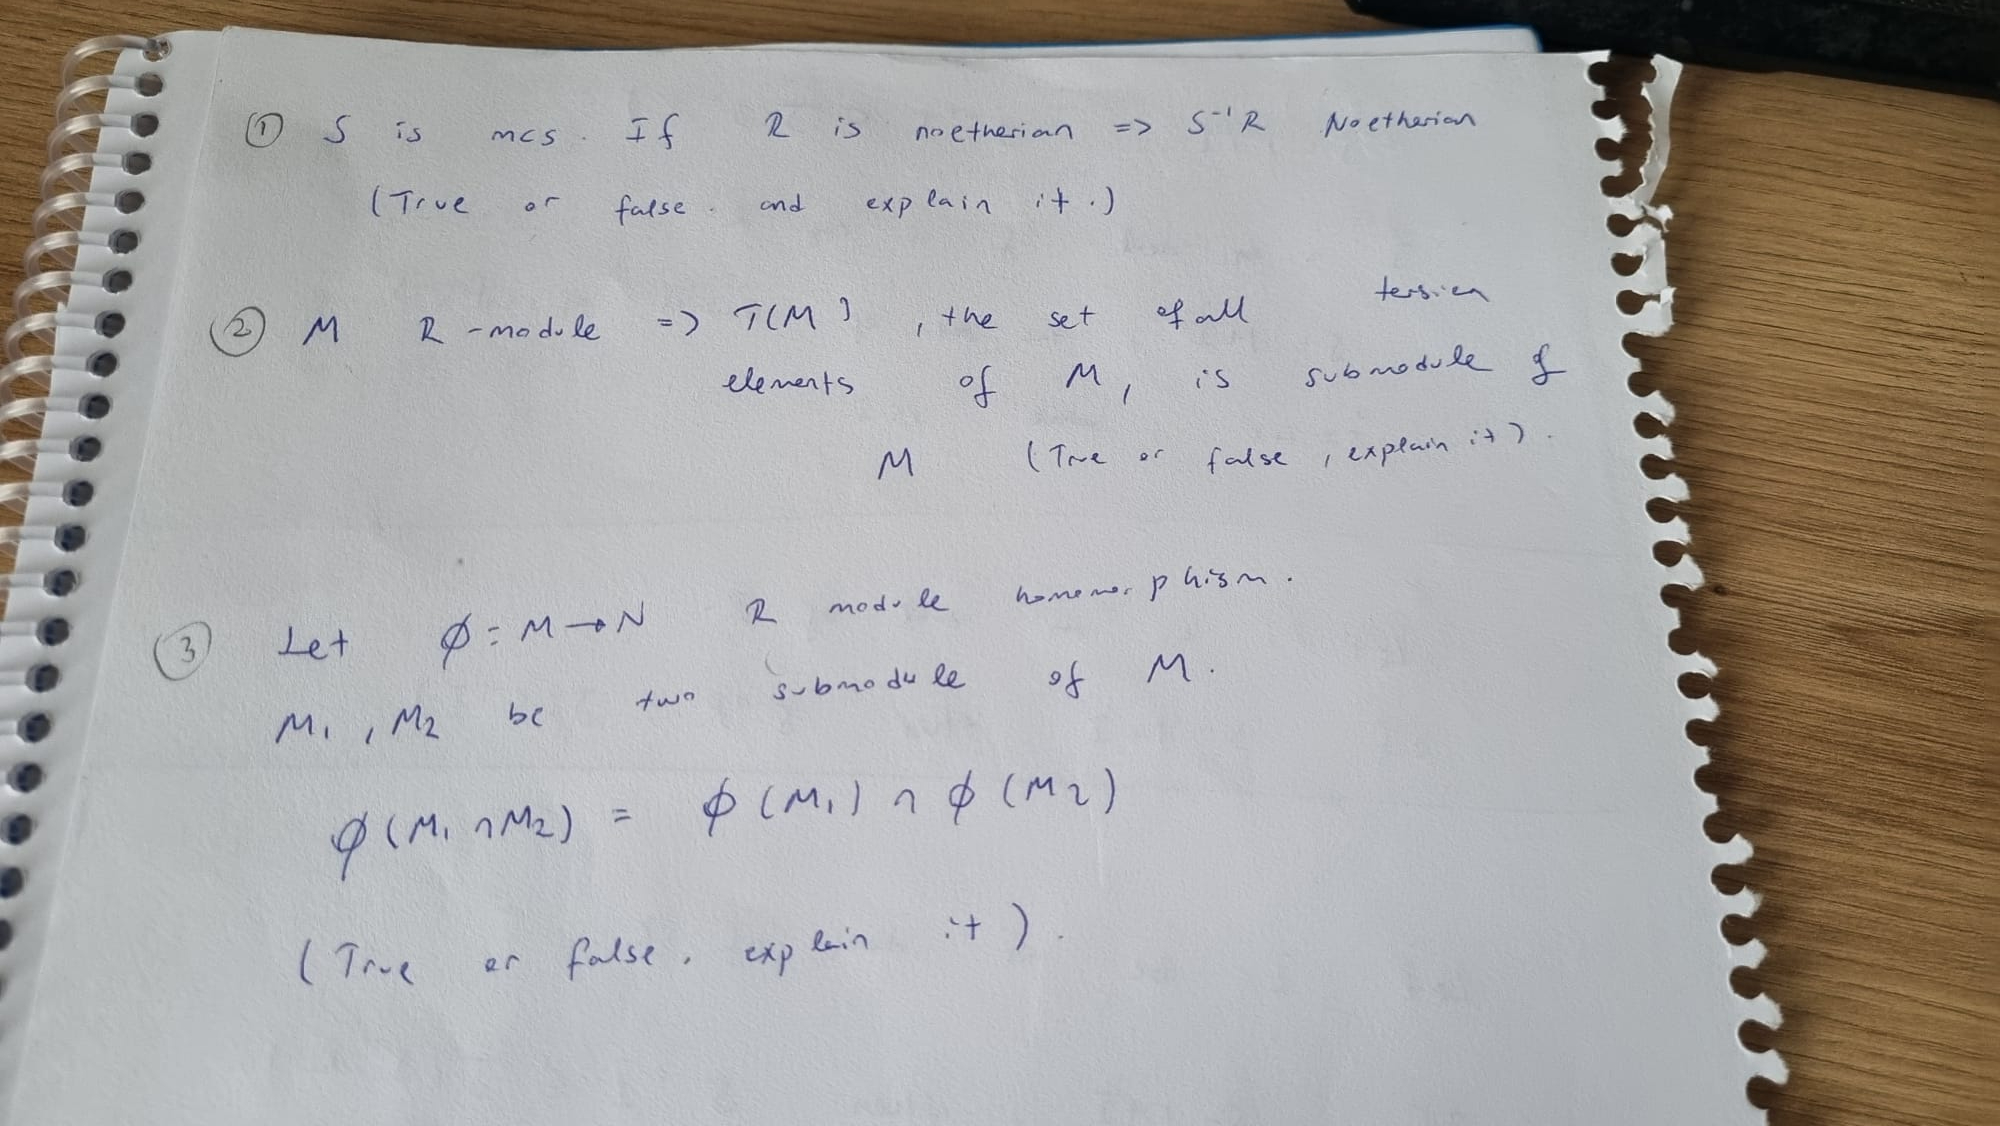 ① S is mcs. If R is noetherian => S⁻¹R Noetherian
(True or false. and explain it.)
② M R-module => T(M), the set of all tersien
elements of M, is submodule of
M (True or false, explain it).
③ Let φ: M→N R module homomorphism.
M₁, M₂ be two submodule of M.
φ(M₁ ∩ M₂) = φ(M₁) ∩ φ(M₂)
(True or false. explain it).